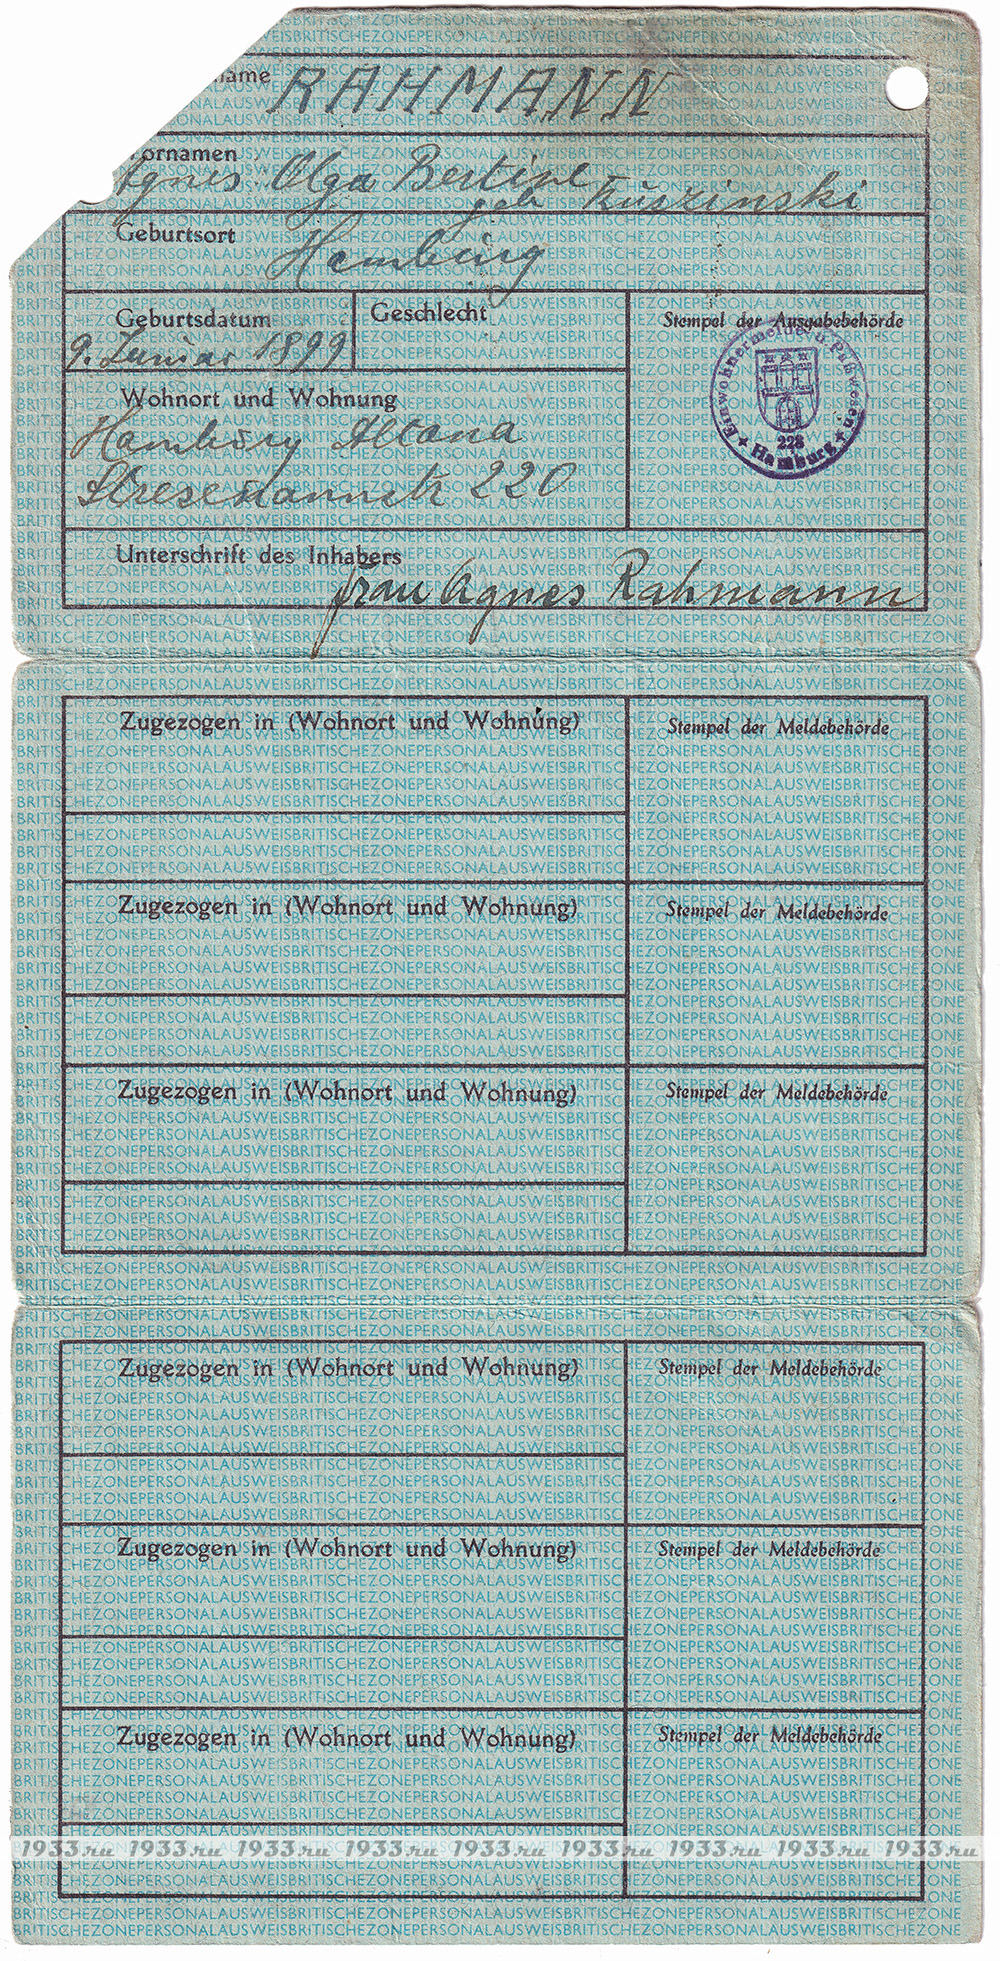 name RAHMANN
Vornamen
Agnes Olga Bertine
geb Kuszinski
Geburtsort
Hamburg
Geburtsdatum
Geschlecht
Stempel der Ausgabebehörde
9. Januar 1899
Einwohnermelde- u. Paßwesen
228
Hamburg
Wohnort und Wohnung
Hamburg Altona
Stresemannstr 220
Unterschrift des Inhabers
Frau Agnes Rahmann
Zugezogen in (Wohnort und Wohnung)
Stempel der Meldebehörde
Zugezogen in (Wohnort und Wohnung)
Stempel der Meldebehörde
Zugezogen in (Wohnort und Wohnung)
Stempel der Meldebehörde
Zugezogen in (Wohnort und Wohnung)
Stempel der Meldebehörde
Zugezogen in (Wohnort und Wohnung)
Stempel der Meldebehörde
Zugezogen in (Wohnort und Wohnung)
Stempel der Meldebehörde
1933.ru 1933.ru 1933.ru 1933.ru 1933.ru 1933.ru 1933.ru 1933.ru 1933.ru
BRITISCHEZONEPERSONALAUSWEISBRITISCHEZONEPERSONALAUSWEISBRITISCHEZONE